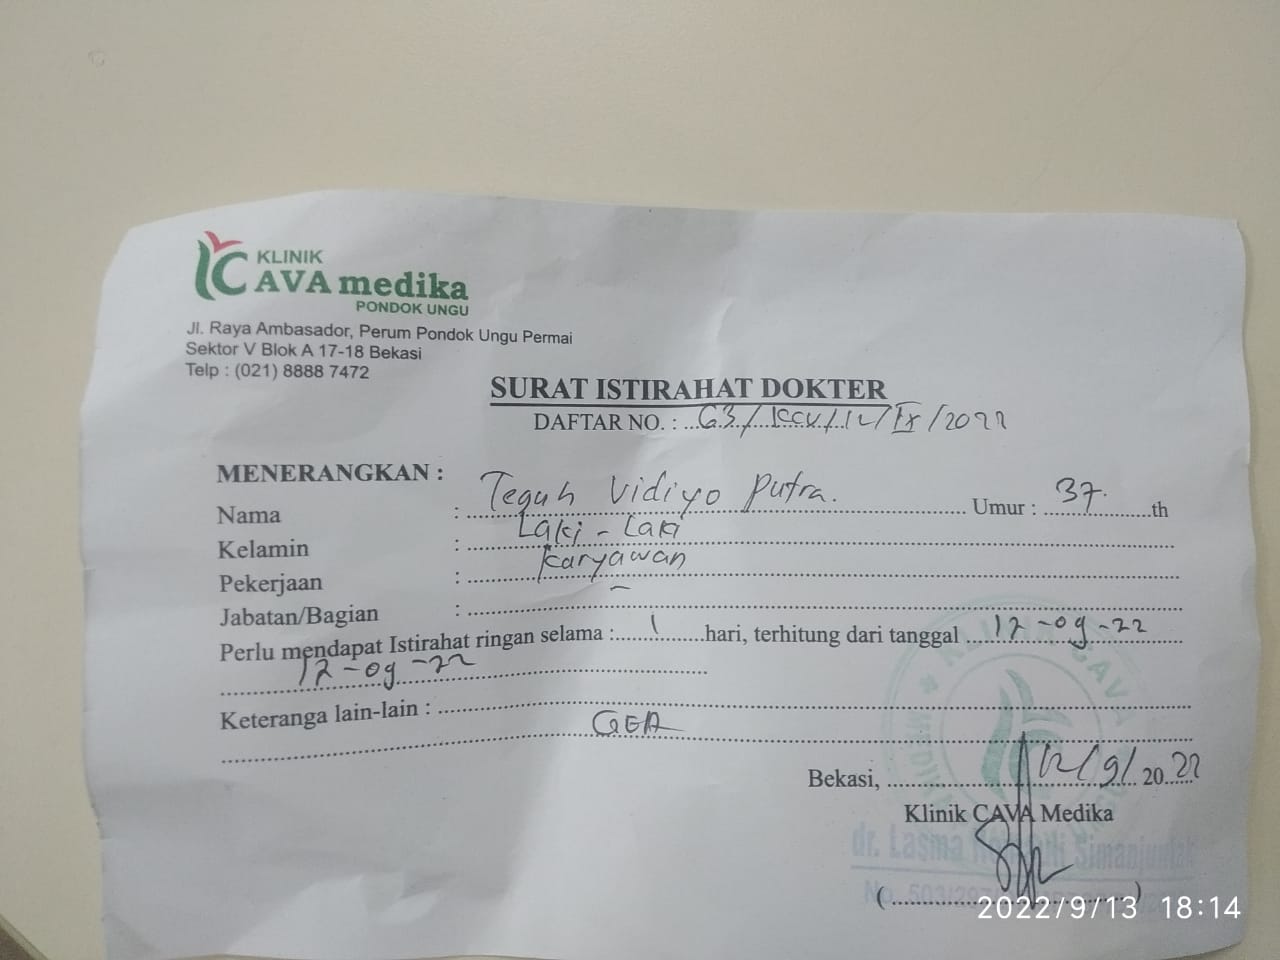 KLINIK
CAVA medika
PONDOK UNGU
Jl. Raya Ambasador, Perum Pondok Ungu Permai
Sektor V Blok A 17-18 Bekasi
Telp : (021) 8888 7472
SURAT ISTIRAHAT DOKTER
DAFTAR NO. : 63/KCV/12/IX/2022
MENERANGKAN :
Nama : Teguh Vidiyo Putra. Umur : 37 th
Kelamin : Laki-Laki
Pekerjaan : Karyawan
Jabatan/Bagian : -
Perlu mendapat Istirahat ringan selama : 1 hari, terhitung dari tanggal 12-09-22
12-09-22
Keteranga lain-lain :
GEA
Bekasi, 12/9/2022
Klinik CAVA Medika
dr. Lasma Simanjuntak
2022/9/13 18:14